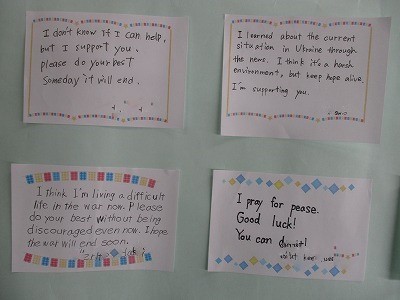 I don't know if I can help,
but I support you.
please do your best
Someday it will end.
I learned about the current
situation in Ukraine through
the news. I think it's a harsh
environment, but keep hope alive.
I'm supporting you.
I think I'm living a difficult
life in the war now. Please
do your best without being
discouraged even now. I hope
the war will end soon.
I pray for pease.
Good luck!
You can